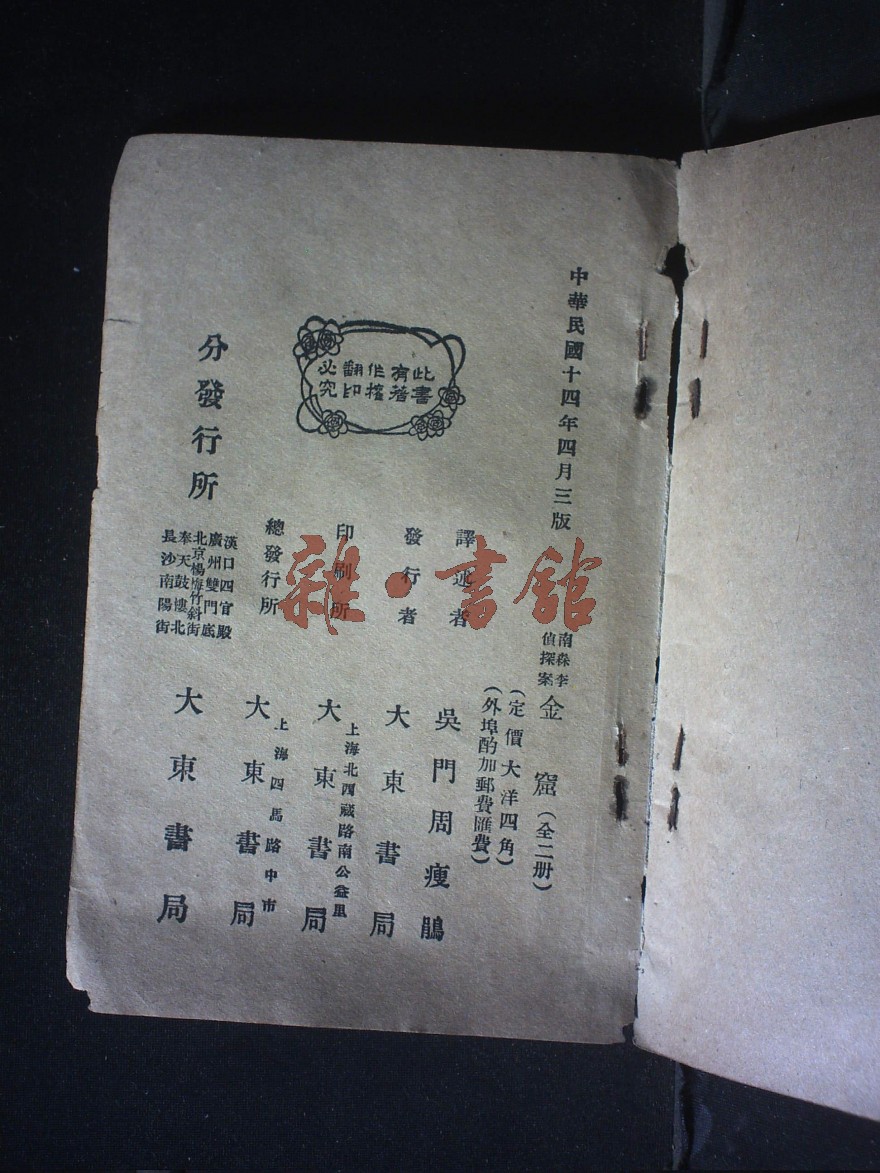 中華民國十四年四月三版
南森李
偵探案
金窟（全二册）
（定價大洋四角）
（外埠酌加郵費匯費）
譯述者
吳門周瘦鵑
發行者
大東書局
印刷所
上海北西藏路南公益里
大東書局
總發行所
上海四馬路中市
大東書局
此書
有著
作權
翻印
必究
分發行所
漢口四官殿
廣州雙門底
北京楊梅竹斜街
奉天鼓樓北
長沙南陽街
大東書局
雜·書館